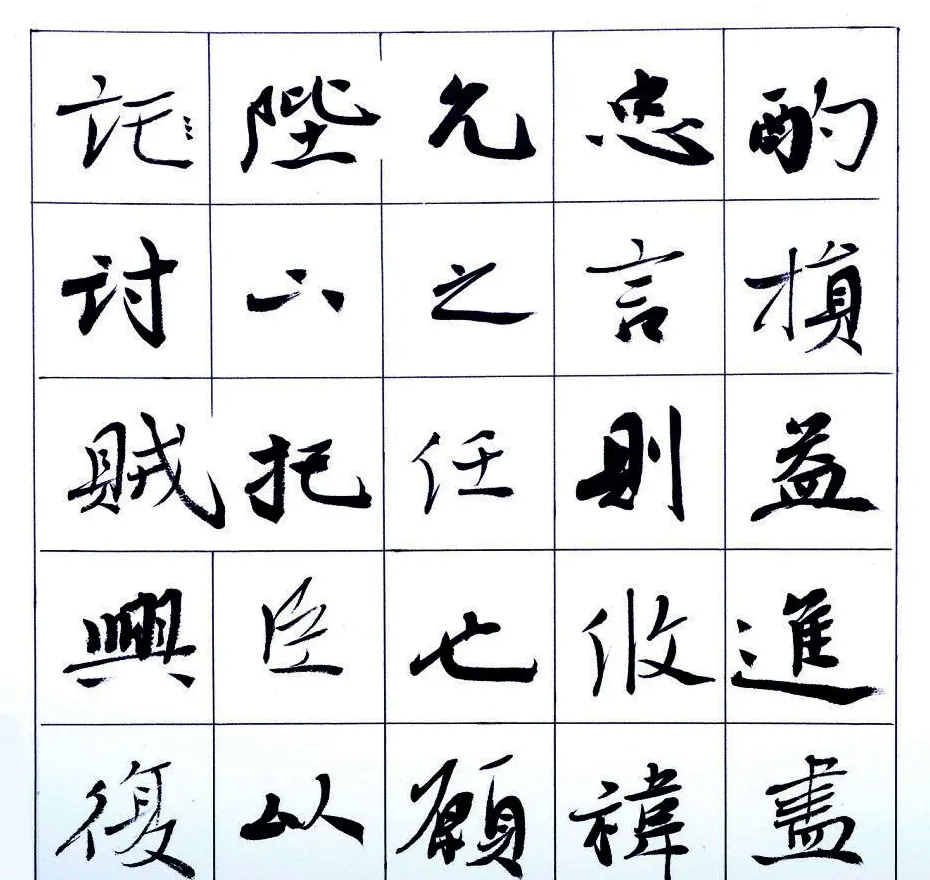 酌損益進盡
忠言則攸禕
允之任也願
陛下托臣以
託討賊興復